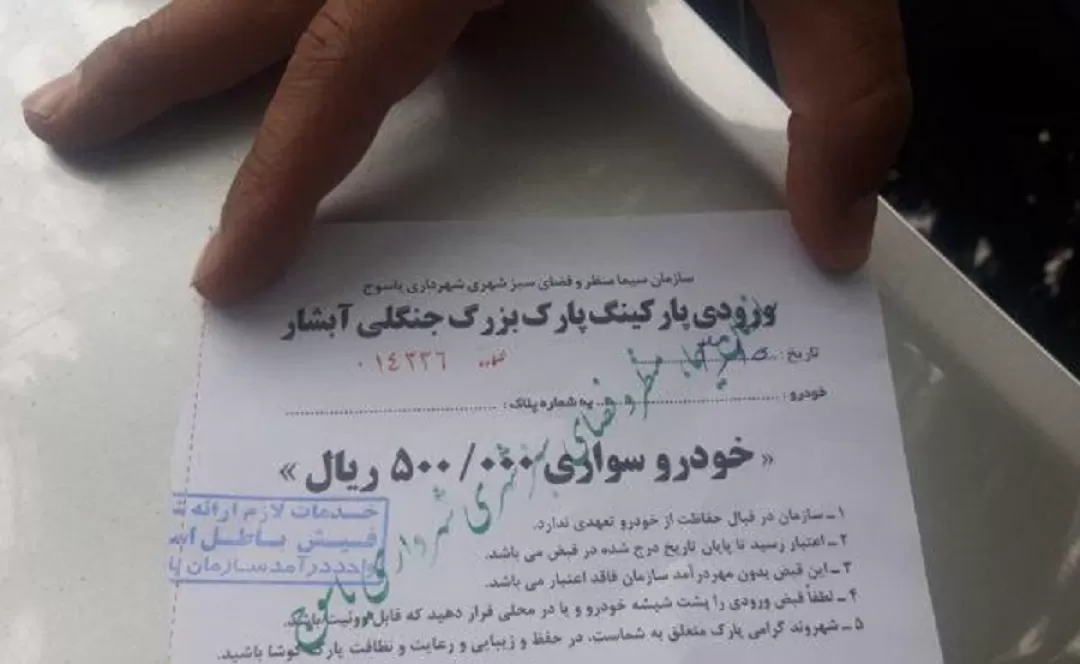 سازمان سیما منظر و فضای سبز شهری شهرداری یاسوج
ورودی پارکینگ پارک بزرگ جنگلی آبشار
تاریخ :
شماره ۰۱۴۳۳۶
خودرو : به شماره پلاک :
« خودرو سواری ۵۰۰/۰۰۰ ریال »
۱ـ سازمان در قبال حفاظت از خودرو تعهدی ندارد.
۲ـ اعتبار رسید تا پایان تاریخ درج شده در قبض می باشد.
۳ـ این قبض بدون مهر درآمد سازمان فاقد اعتبار می باشد.
۴ـ لطفاً قبض ورودی را پشت شیشه خودرو و یا در محلی قرار دهید که قابل روئیت باشد.
۵ـ شهروند گرامی پارک متعلق به شماست، در حفظ و زیبایی و رعایت و نظافت پارک کوشا باشید.
خدمات لازم ارائه
فیش باطل
واحد درآمد سازمان
سیما، منظر و فضای سبز شهری شهرداری یاسوج